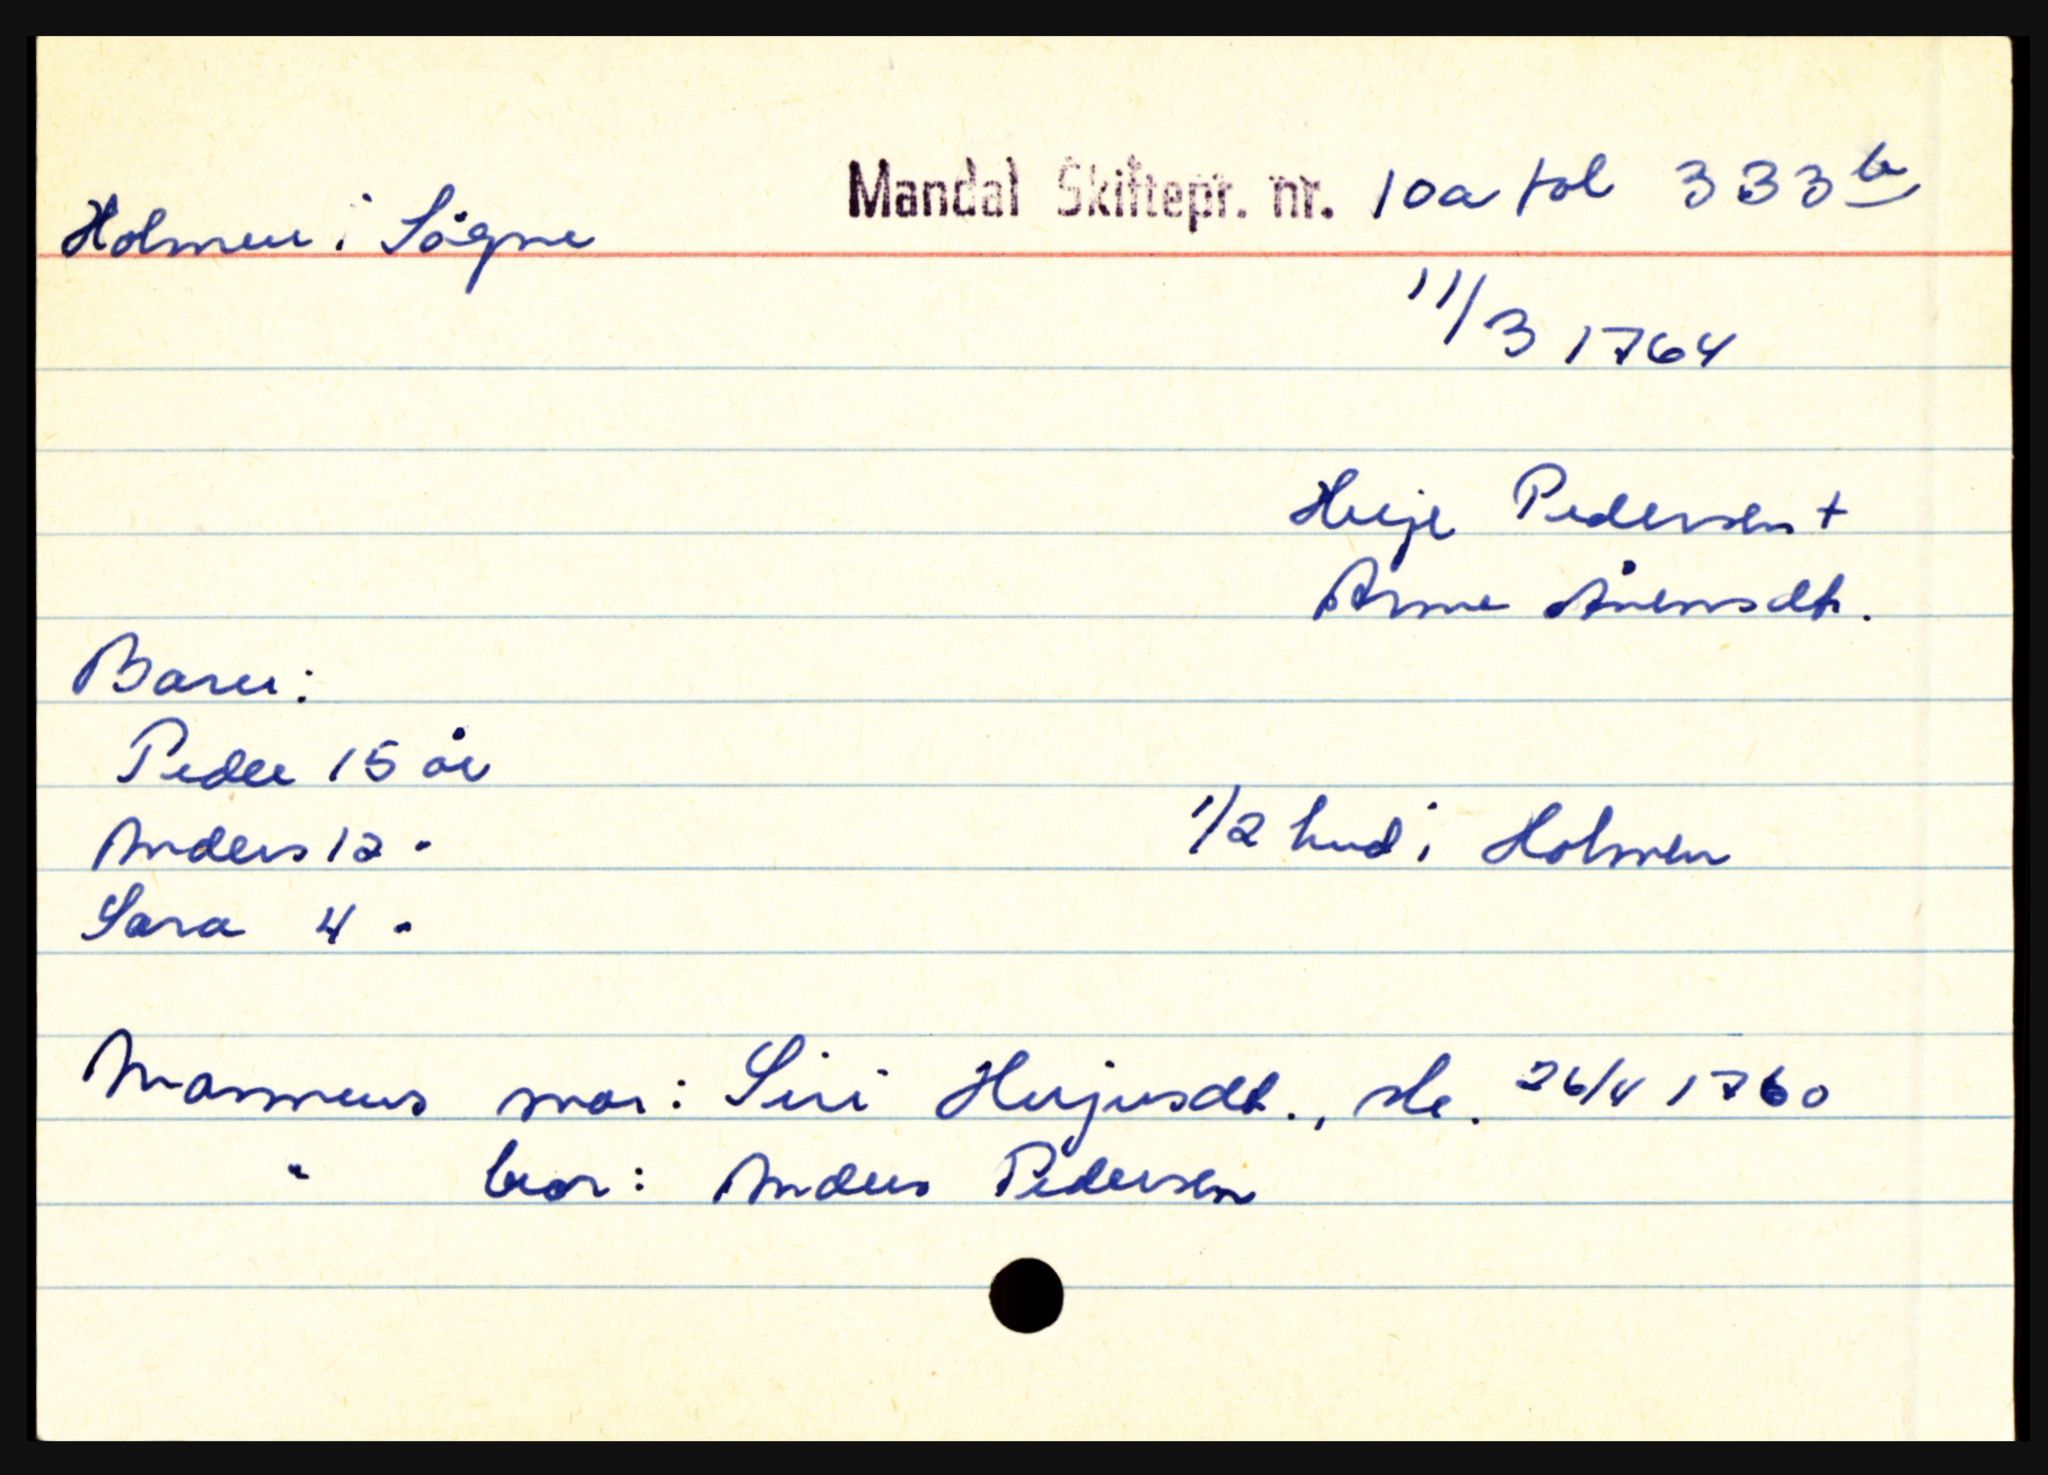 Mandal Skiftepr. nr. 10a fol 333b
Holmen i Søgne
11/3 1764
Herje Pedersen +
Anne Ånensdtr.
Barn:
Peder 15 år
Anders 12 "
1/2 hud i Holmen
Sara 4 "
Mannens mor: Siri Herjusdt., sk. 26/4 1760
" bror: Anders Pedersen